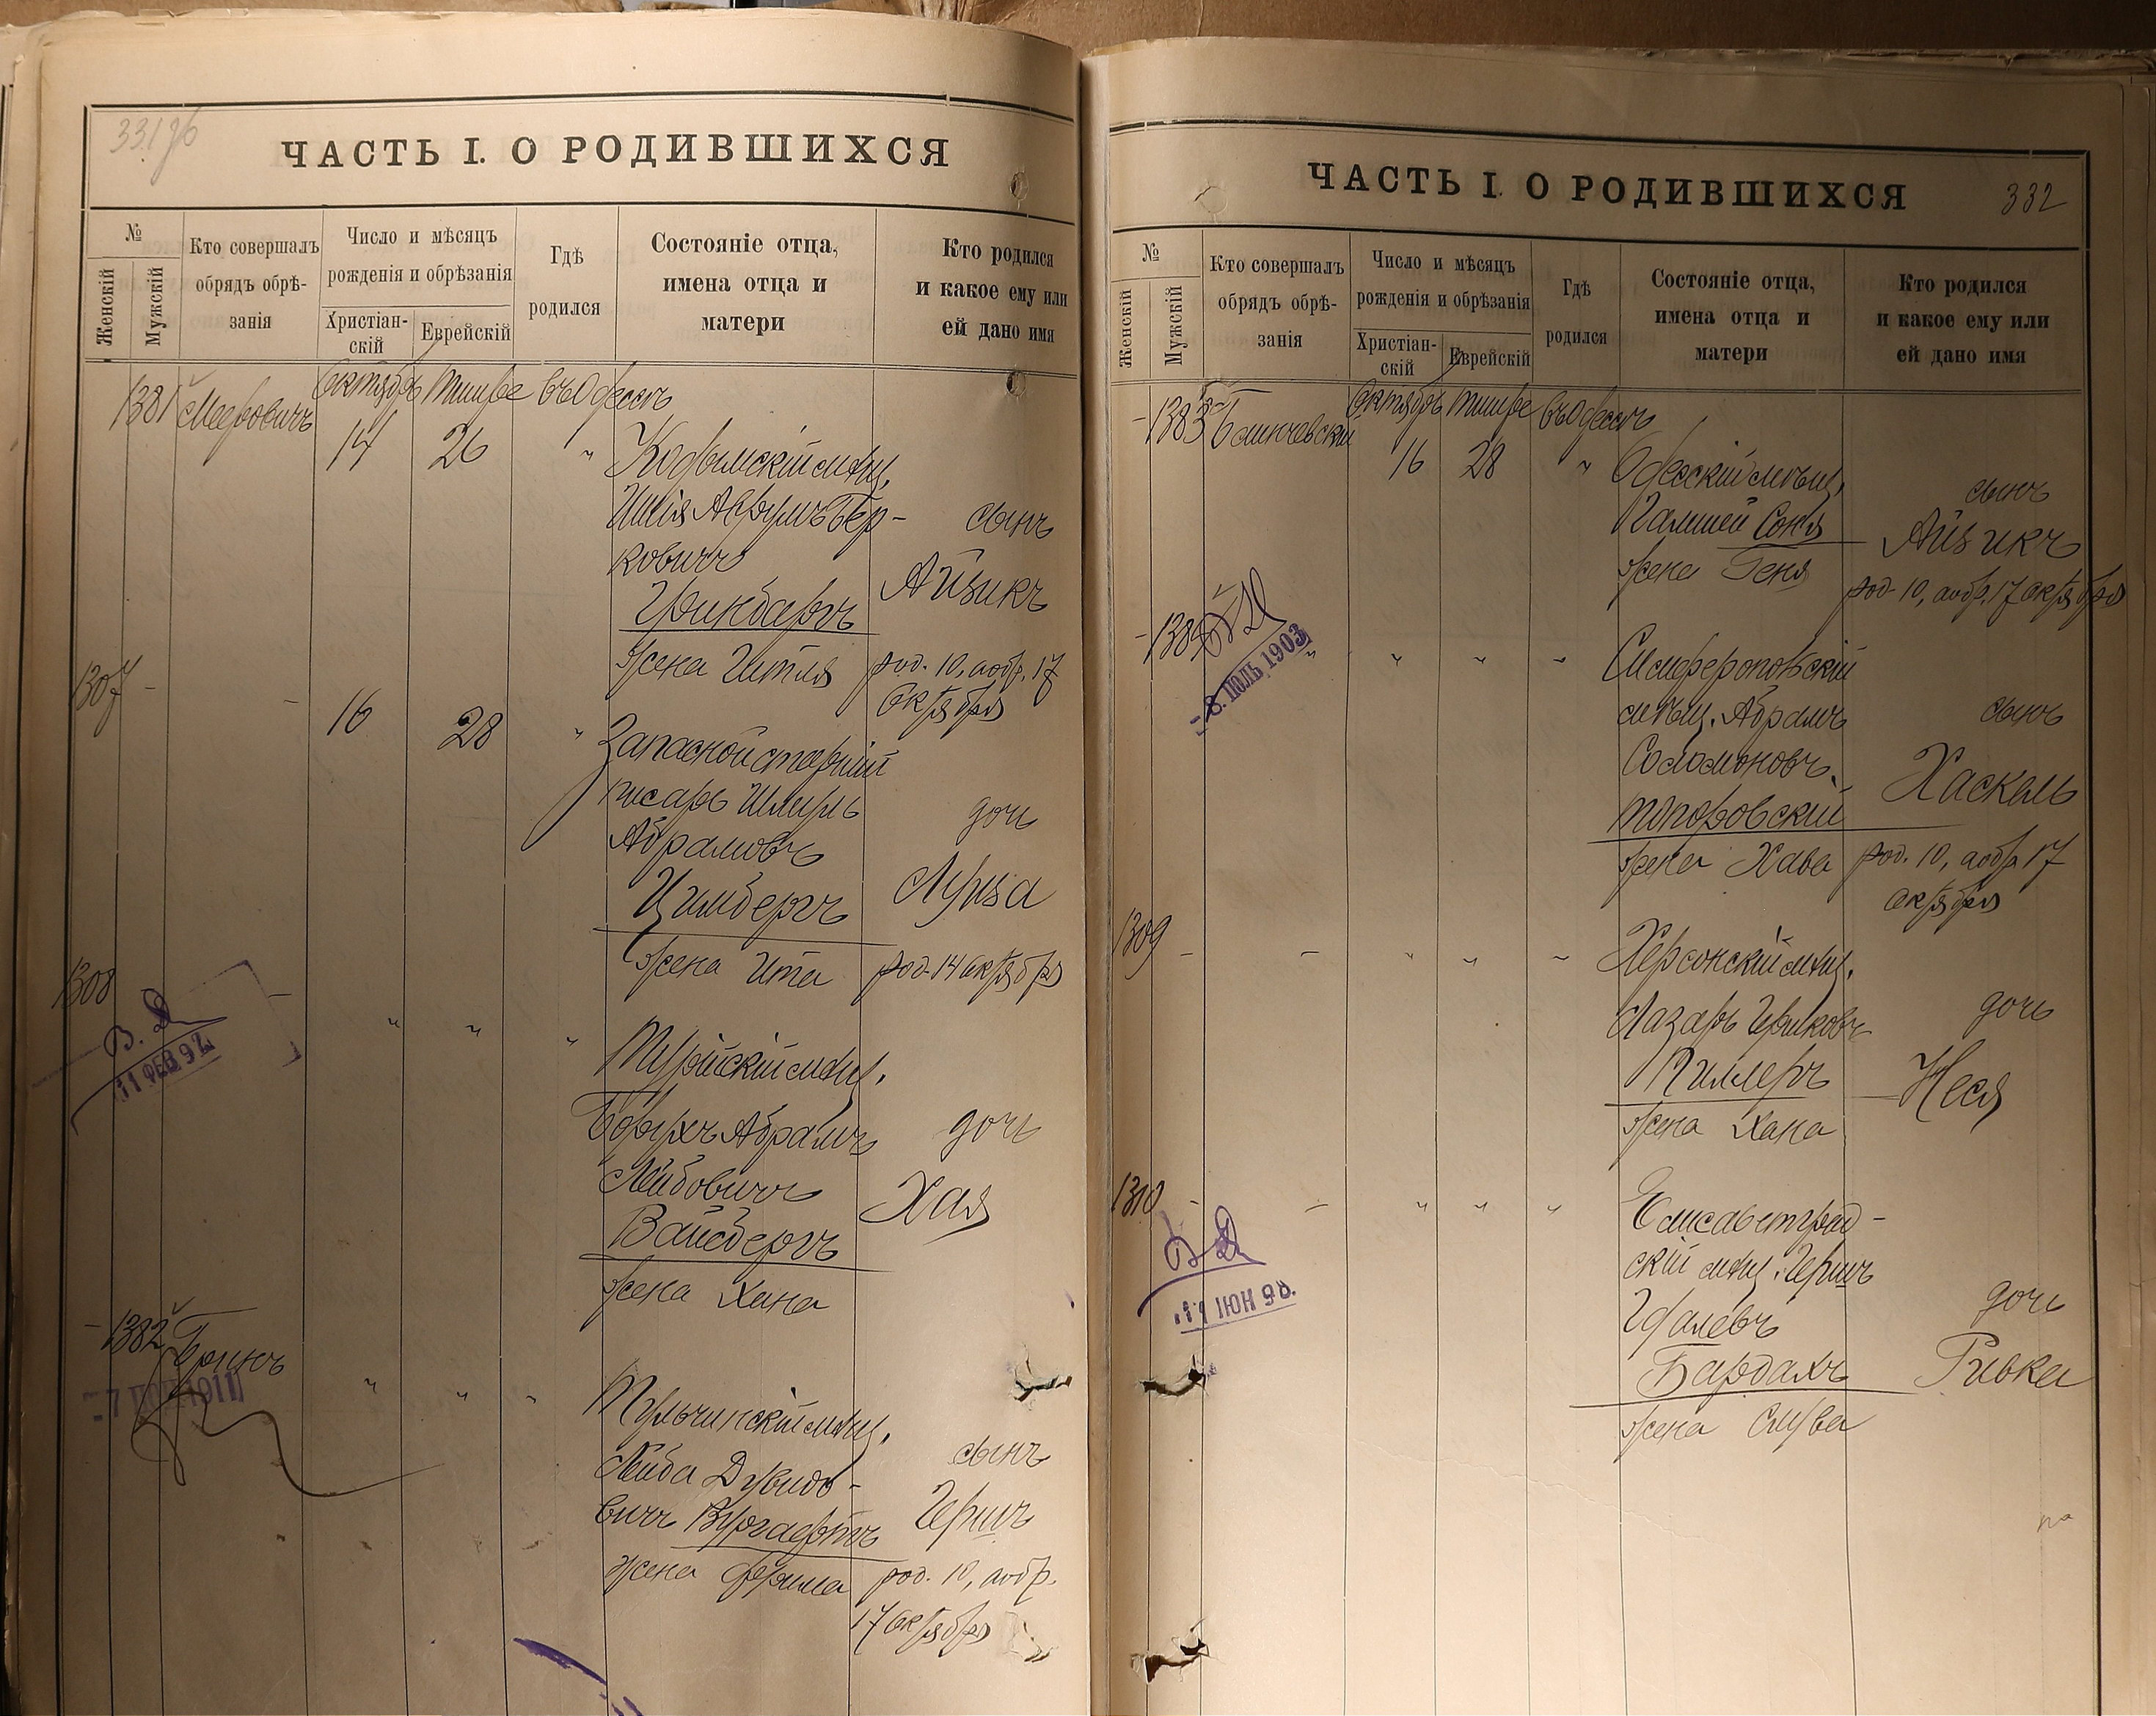 331 об
ЧАСТЬ I. О РОДИВШИХСЯ
№
Женскій
Мужскій
Кто совершалъ
обрядъ обрѣ-
занія
Число и мѣсяцъ
рожденія и обрѣзанія
Христіан-
скій
Еврейскій
Гдѣ
родился
Состояніе отца,
имена отца и
матери
Кто родился
и какое ему или
ей дано имя
1381 Меерович Октябрь Тишре въ Одессѣ
14 26 " Кодымскій мѣщ.
Аврумъ Бер-
ковичъ
Гринбергъ
жена Гитля
сынъ
Айзикъ
род. 10, обр. 17
Октября
1307 - - 16 28 " Запасной старшій
писарь Шмуль
Абрамовъ
Цимбергъ
жена Ита
дочь
Луиза
род. 14 Октября
1308 - " " "
В. Д.
11 ФЕВ 97
Турійскій мѣщ.
Борухъ Абрамъ
Лейбовичъ
Вайсбергъ
жена Хана
дочь
Хая
- 1382 Бринъ " " "
- 7 1911
Тульчинскій мѣщ.
Лейба Дувидо-
вичъ Вургафтъ
жена Фрима
сынъ
Гершъ
род. 10, обр.
17 Октября
ЧАСТЬ I. О РОДИВШИХСЯ
332
№
Женскій
Мужскій
Кто совершалъ
обрядъ обрѣ-
занія
Число и мѣсяцъ
рожденія и обрѣзанія
Христіан-
скій
Еврейскій
Гдѣ
родился
Состояніе отца,
имена отца и
матери
Кто родился
и какое ему или
ей дано имя
- 1383 Октябрь Тишре въ Одессѣ
16 28 " Одесскій мѣщ.
жена Геня
сынъ
Айзикъ
род. 10, обр. 17 Октября
- 1384 " " " "
- 8. ІЮЛЬ 1903
Симферопольскій
мѣщ. Абрамъ
Соломоновъ
Топоровскій
жена Хава
сынъ
Хаскель
род. 10, обр. 17
октября
1309 - - " " "
Херсонскій мѣщ.
Лазарь Гершковъ
Пиллеръ
жена Хана
дочь
Неся
1310 - - " " "
В. Д.
11 ІЮН 98.
Елисаветград-
скій мѣщ. Гершъ
Бардахъ
жена Слува
дочь
Ривка